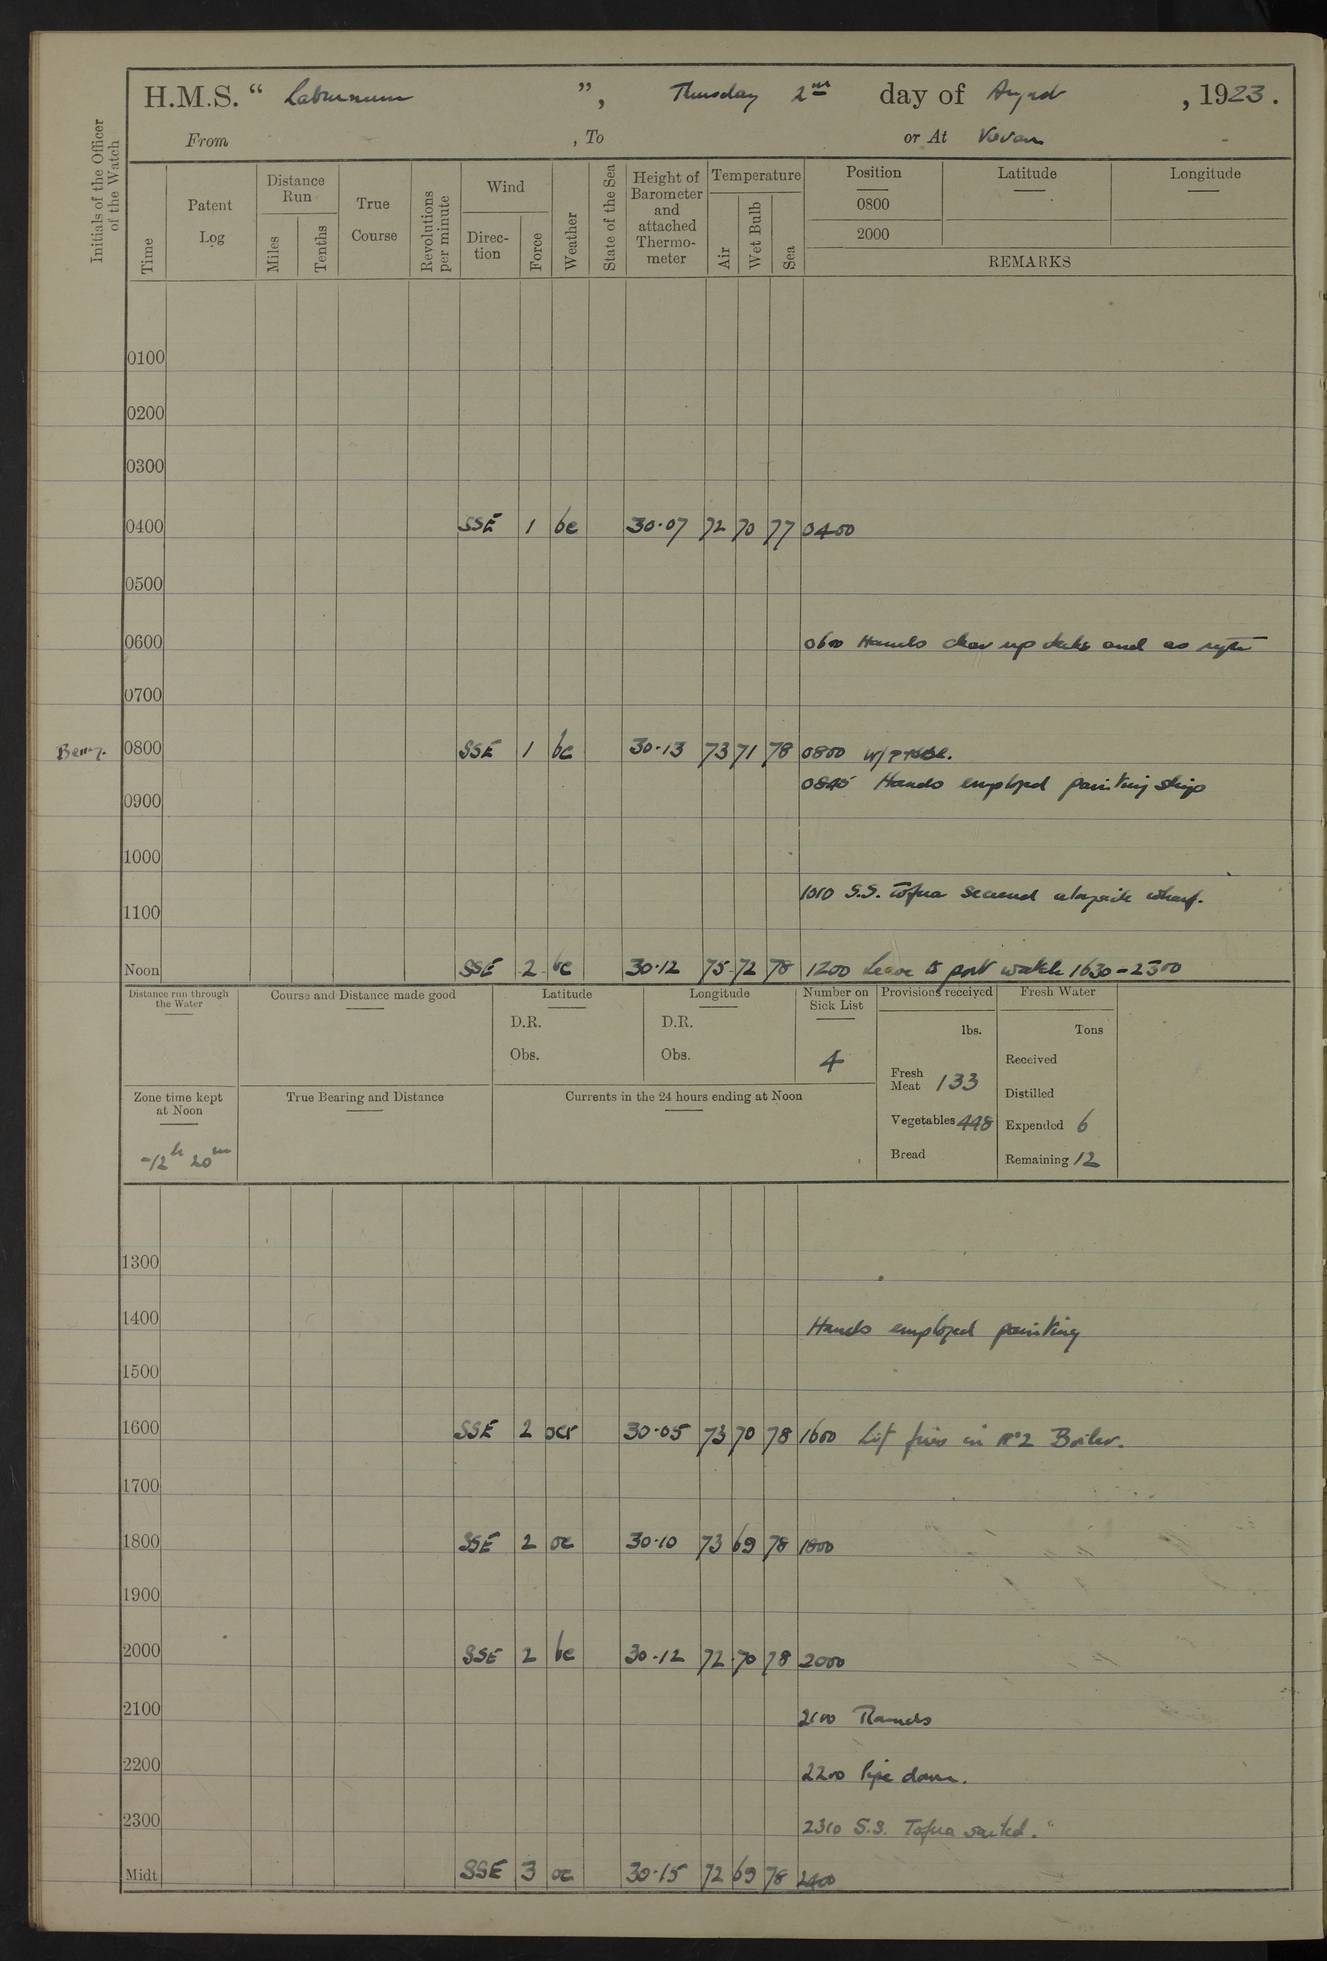 H.M.S. “ Laburnum ”, Thursday 2nd day of August, 1923.
From , To or At Vavau
Initials of the Officer of the Watch
Time
Patent Log
Distance Run
Miles
Tenths
True Course
Revolutions per minute
Wind
Direc-tion
Force
Weather
State of the Sea
Height of Barometer and attached Thermo-meter
Temperature
Air
Wet Bulb
Sea
Position Latitude Longitude
0800
2000
REMARKS
0100
0200
0300
0400 SSE 1 bc 30·07 72 70 77 0400
0500
0600 0600 Hands clear up decks and as reqte
0700
0800 SSE 1 bc 30·13 73 71 78 0800
0845 Hands employed painting ship
0900
1000
1010 S.S. Tofua secured alongside wharf.
1100
Noon SSE 2 bc 30·12 75 72 78 1200 Leave to port watch 1630-2300
Distance run through the Water
Course and Distance made good
Latitude
D.R.
Obs.
Longitude
D.R.
Obs.
Number on Sick List
4
Provisions received
lbs.
Fresh Meat 133
Vegetables 448
Bread
Fresh Water
Tons
Received
Distilled
Expended 6
Remaining 12
Zone time kept at Noon
-12h 20m
True Bearing and Distance
Currents in the 24 hours ending at Noon
1300
1400 Hands employed painting
1500
1600 SSE 2 ocr 30·05 73 70 78 1600 Lit fires in No2 Boiler.
1700
1800 SSE 2 oc 30·10 73 69 78 1800
1900
2000 SSE 2 bc 30·12 72 70 78 2000
2100 2100 Rounds
2200 2200 Pipe down.
2300 2310 S.S. Tofua sailed.
Midt SSE 3 oc 30·15 72 69 78 2400